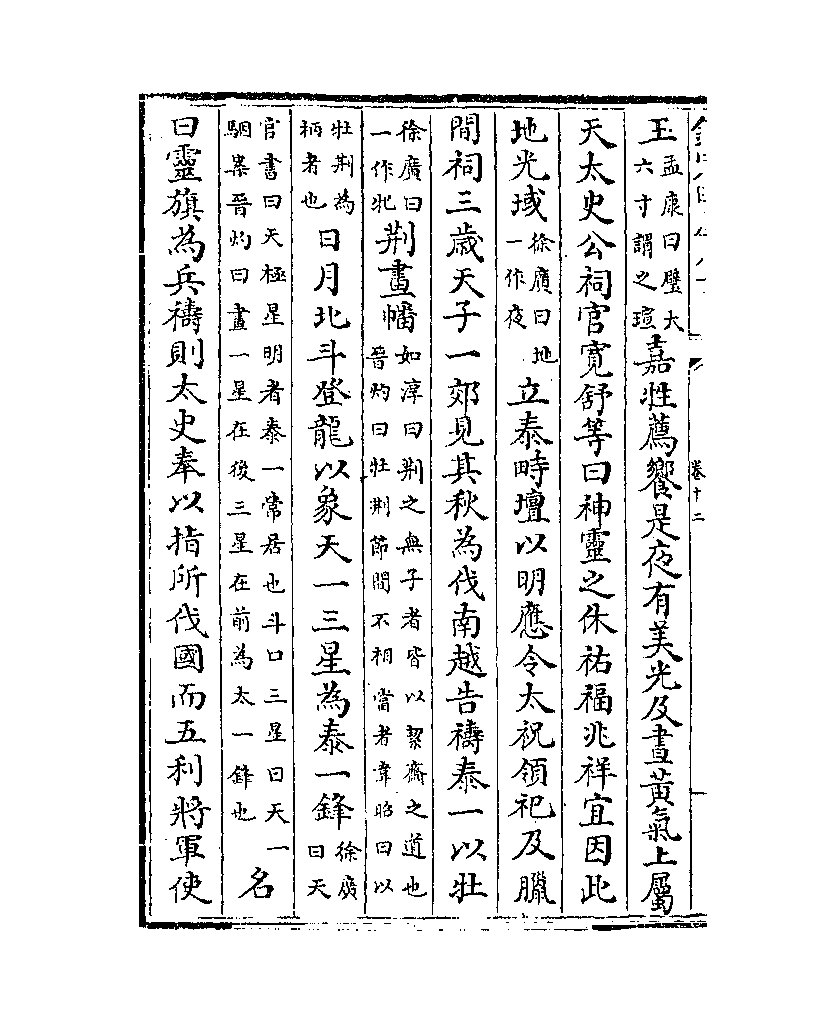 卷十二
玉孟康曰璧大六寸謂之瑄嘉牲薦饗是夜有美光及晝黃氣上屬
天太史公祠官寬舒等曰神靈之休祐福兆祥宜因此
地光域徐廣曰地一作夜立泰畤壇以明應令太祝領祀及臘
間祠三歲天子一郊見其秋為伐南越告禱泰一以牡
徐廣曰一作牝荆畫幡如淳曰荆之無子者皆以絜齋之道也晉灼曰牡荆節間不相當者韋昭曰以
牡荆為柄者也日月北斗登龍以象天一三星為泰一鋒徐廣曰天
官書曰天極星明者泰一常居也斗口三星曰天一駰案晉灼曰畫一星在後三星在前為太一鋒也名
曰靈旗為兵禱則太史奉以指所伐國而五利將軍使